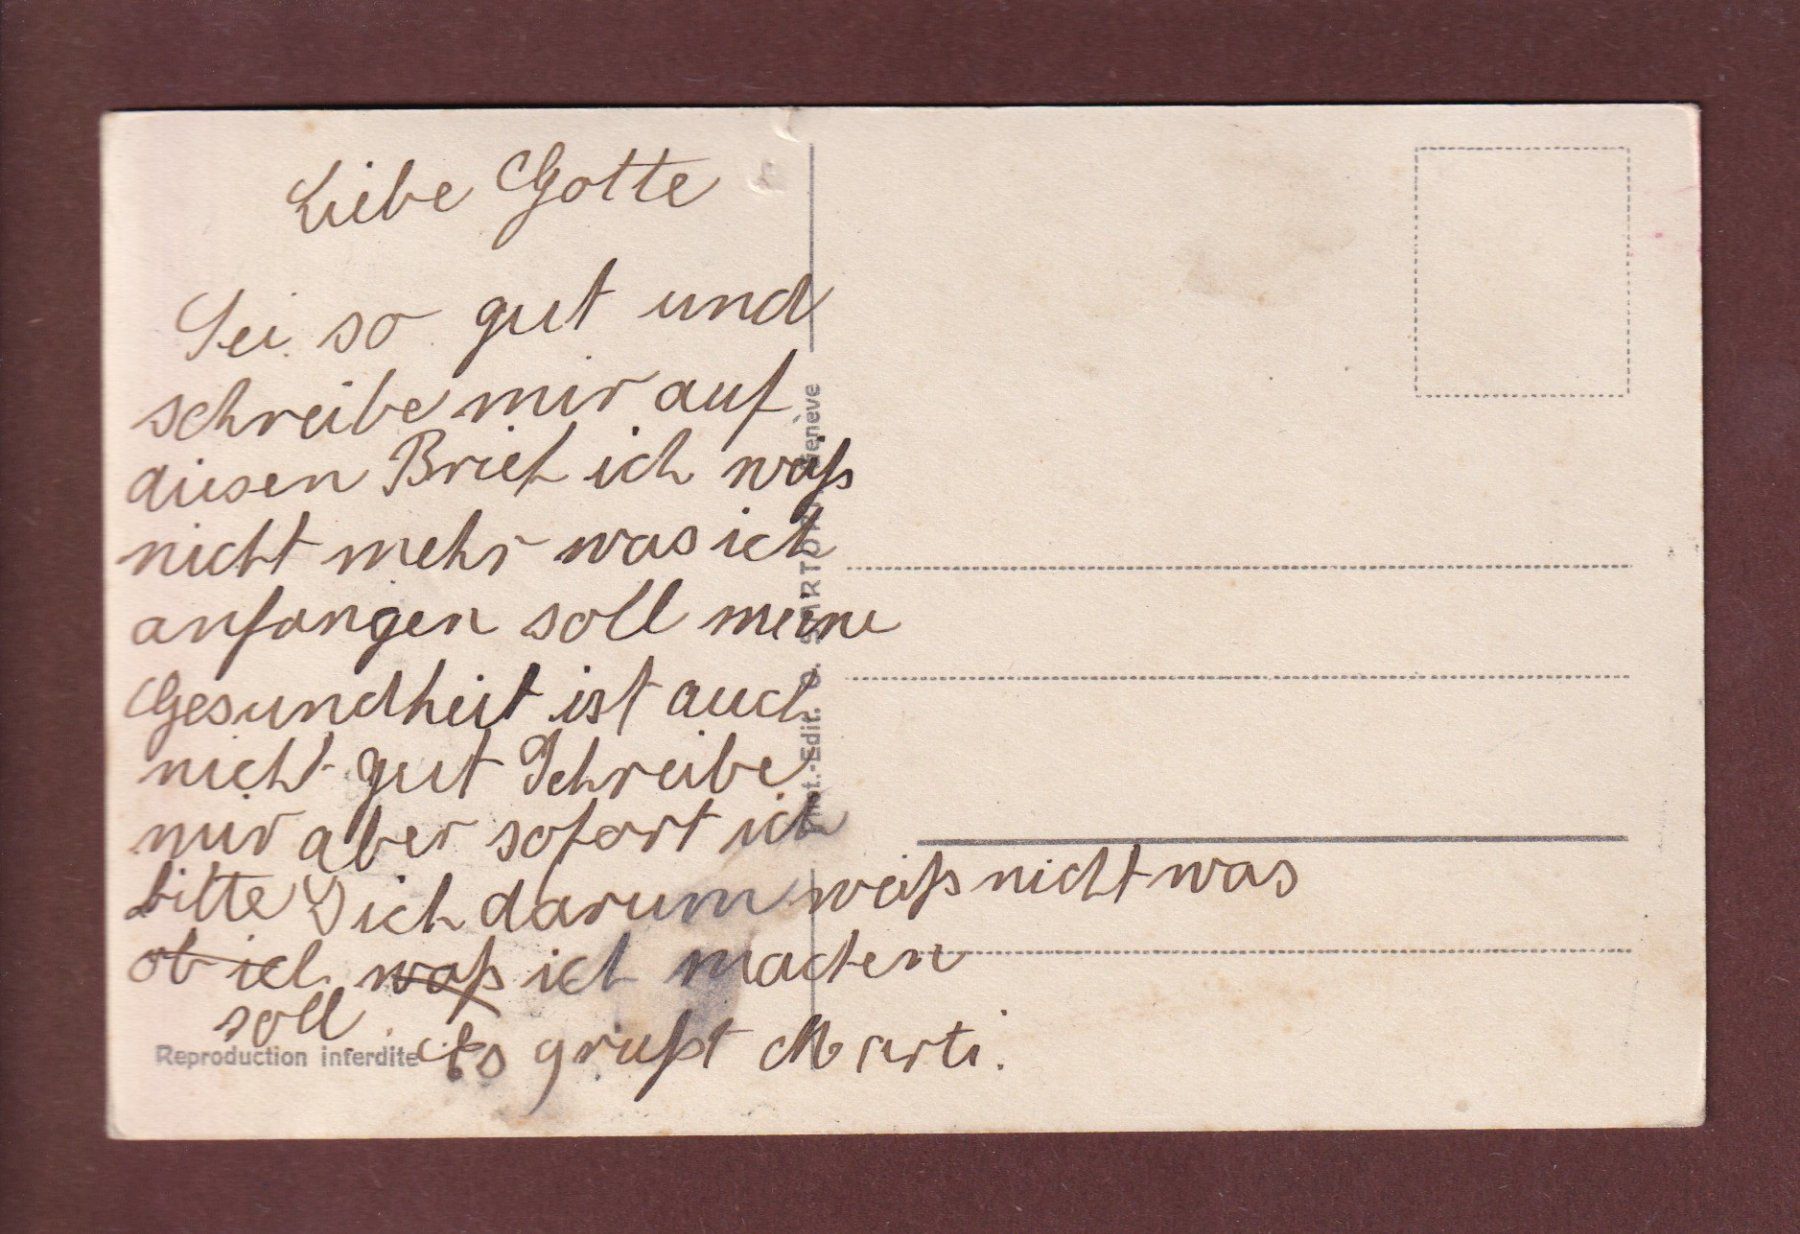 Liebe Gotte
Sei so gut und
schreibe mir auf
diesen Brief ich waß
nicht mehr was ich
anfangen soll meine
Gesundheit ist auch
nicht gut Schreibe
mir aber sofort ich
bitte Dich darum weiß nicht was
ob ich waß ich machen
soll
Es grüßt Marti.
Reproduction interdite
Phot.-Edit. O. SARTORI, Genève